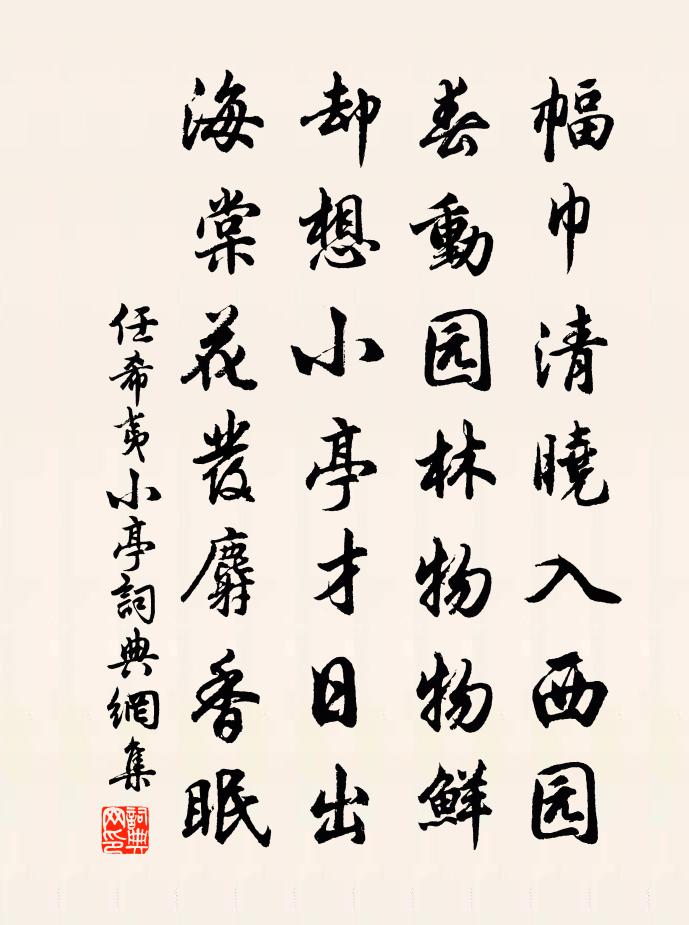 幅巾清曉入西园
春動园林物物鮮
却想小亭才日出
海棠花發麝香眠
任希夷小亭詞典網集
詞典網印